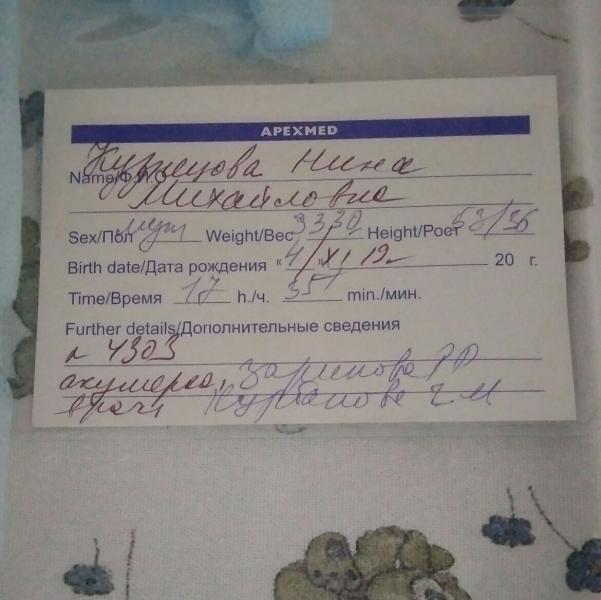 APEXMED
Name/Ф.И.О. Кузнецова Нина
Михайловна
Sex/Пол муж Weight/Вес 3330 Height/Рост 53/36
Birth date/Дата рождения « 4 » XI 19 20 г.
Time/Время 17 h./ч. 35 min./мин.
Further details/Дополнительные сведения
п 4303
акушерка, Зарипова РР
врачи Курбанова Г М